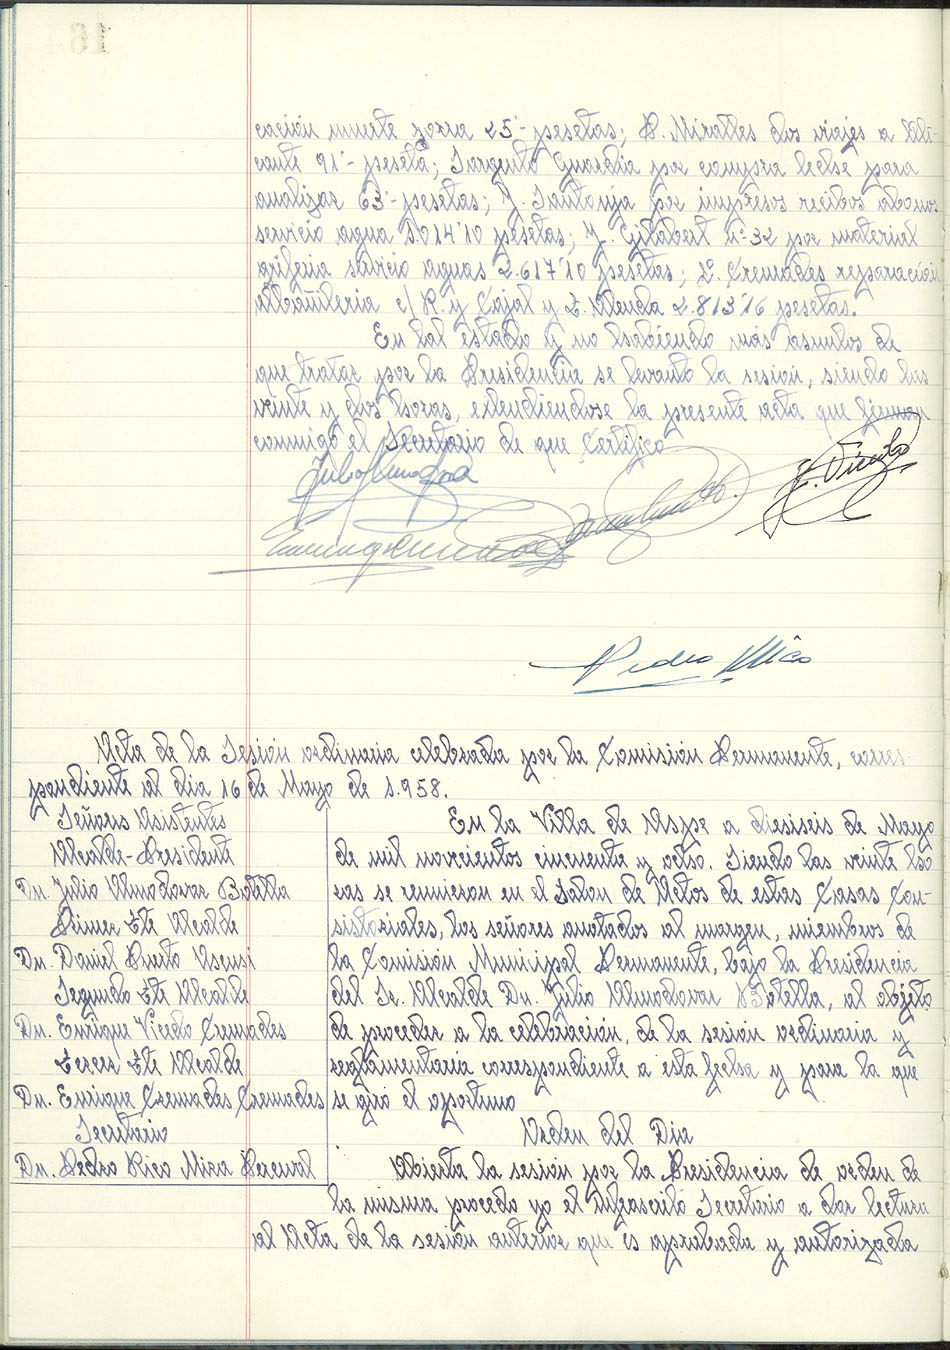 cación muerte zorra 25'- pesetas; B. Miralles dos viajes a Ali-
cante 91'- peseta; Sargento Guardia por compra leche para
analizar 63'- pesetas; J. Santonja por impresos recibos abonos
servicio agua 1.014'10 pesetas; J. Gilabert nº 32 por material
grifería servicio aguas 2.617'10 pesetas; Cremades reparación
albañileria c/ R. y Cajal y 2.813'16 pesetas.
En tal estado y no habiendo más asuntos de
que tratar por la Presidencia se levanto la sesión, siendo las
veinte y dos horas, extendiendose la presente acta que firman
conmigo el Secretario de que Certifico
Pedro Mira
Acta de la Sesión ordinaria celebrada por la Comisión Permanente, corres-
pondiente al dia 16 de Mayo de 1.958.
Señores Asistentes
Alcalde-Presidente
Dn. Julio Almodovar Botella
Primer Tte Alcalde
Dn. Daniel Puerto Asensi
Segundo Tte Alcalde
Dn. Enrique Vicedo Cremades
Tercer Tte Alcalde
Dn. Enrique Cremades Cremades
Secretario
Dn. Pedro Rico Mira Berenal
En la Villa de Aspe a diesiseis de Mayo
de mil novecientos cincuenta y ocho. Siendo las veinte ho
ras se reunieron en el Salon de Actos de estas Casas Con-
sistoriales, los señores anotados al margen, miembros de
la Comisión Municipal Permanente, bajo la Presidencia
del Sr. Alcalde Dn. Julio Almodovar Botella, al objeto
de proceder a la celebración, de la sesión ordinaria y
reglamentaria correspondiente a esta fecha y para la que
se giró el oportuno
Orden del Dia
Abierta la sesión por la Presidencia de orden de
la misma procedo yo el infrascrito Secretario a dar lectura
al Acta de la sesión anterior que es aprobada y autorizada